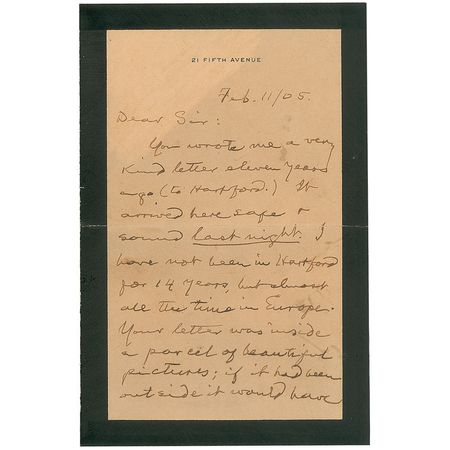 21 FIFTH AVENUE
Feb. 11/05.
Dear Sir:
You wrote me a very
kind letter eleven years
ago (to Hartford.) It
arrived here safe &
sound last night. I
have not been in Hartford
for 14 years, but almost
all the time in Europe.
Your letter was inside
a parcel of beautiful
pictures; if it had been
outside it would have